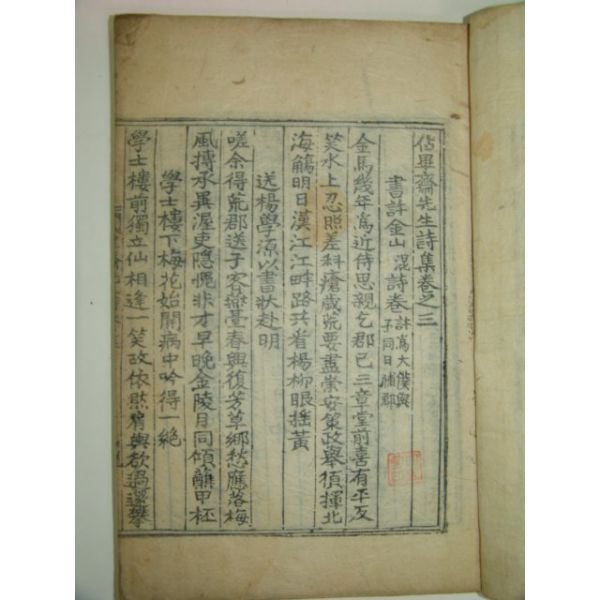 佔畢齋先生詩集卷之三
書許金山混詩卷 許爲大僕與
子同日補郡
金馬幾年爲近侍思親乞郡已三章堂前喜有平反
笑水上忍照差科瘡歲荒要盡崇安策政舉須揮北
海觴明日漢江江畔路共看楊柳眼搖黃
送楊學源以書狀赴明
嗟余得荒郡送子客燕臺春興復芳草鄉愁應落梅
風搏承異渥吏隱愧非才早晚金陵月同傾蘸甲杯
學士樓下梅花始開病中吟得二絶
學士樓前獨立仙相逢一笑政依然肩輿欲過還攀